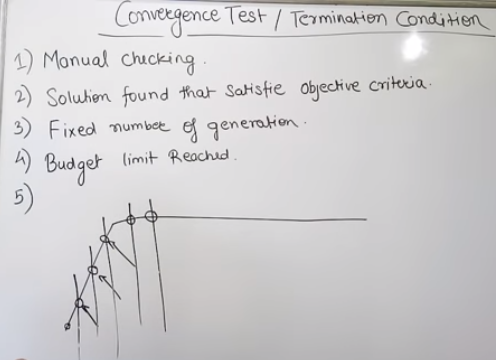 Convergence Test / Termination Condition
1) Manual checking.
2) Solution found that satisfie objective criteria.
3) Fixed number of generation.
4) Budget limit Reached.
5)